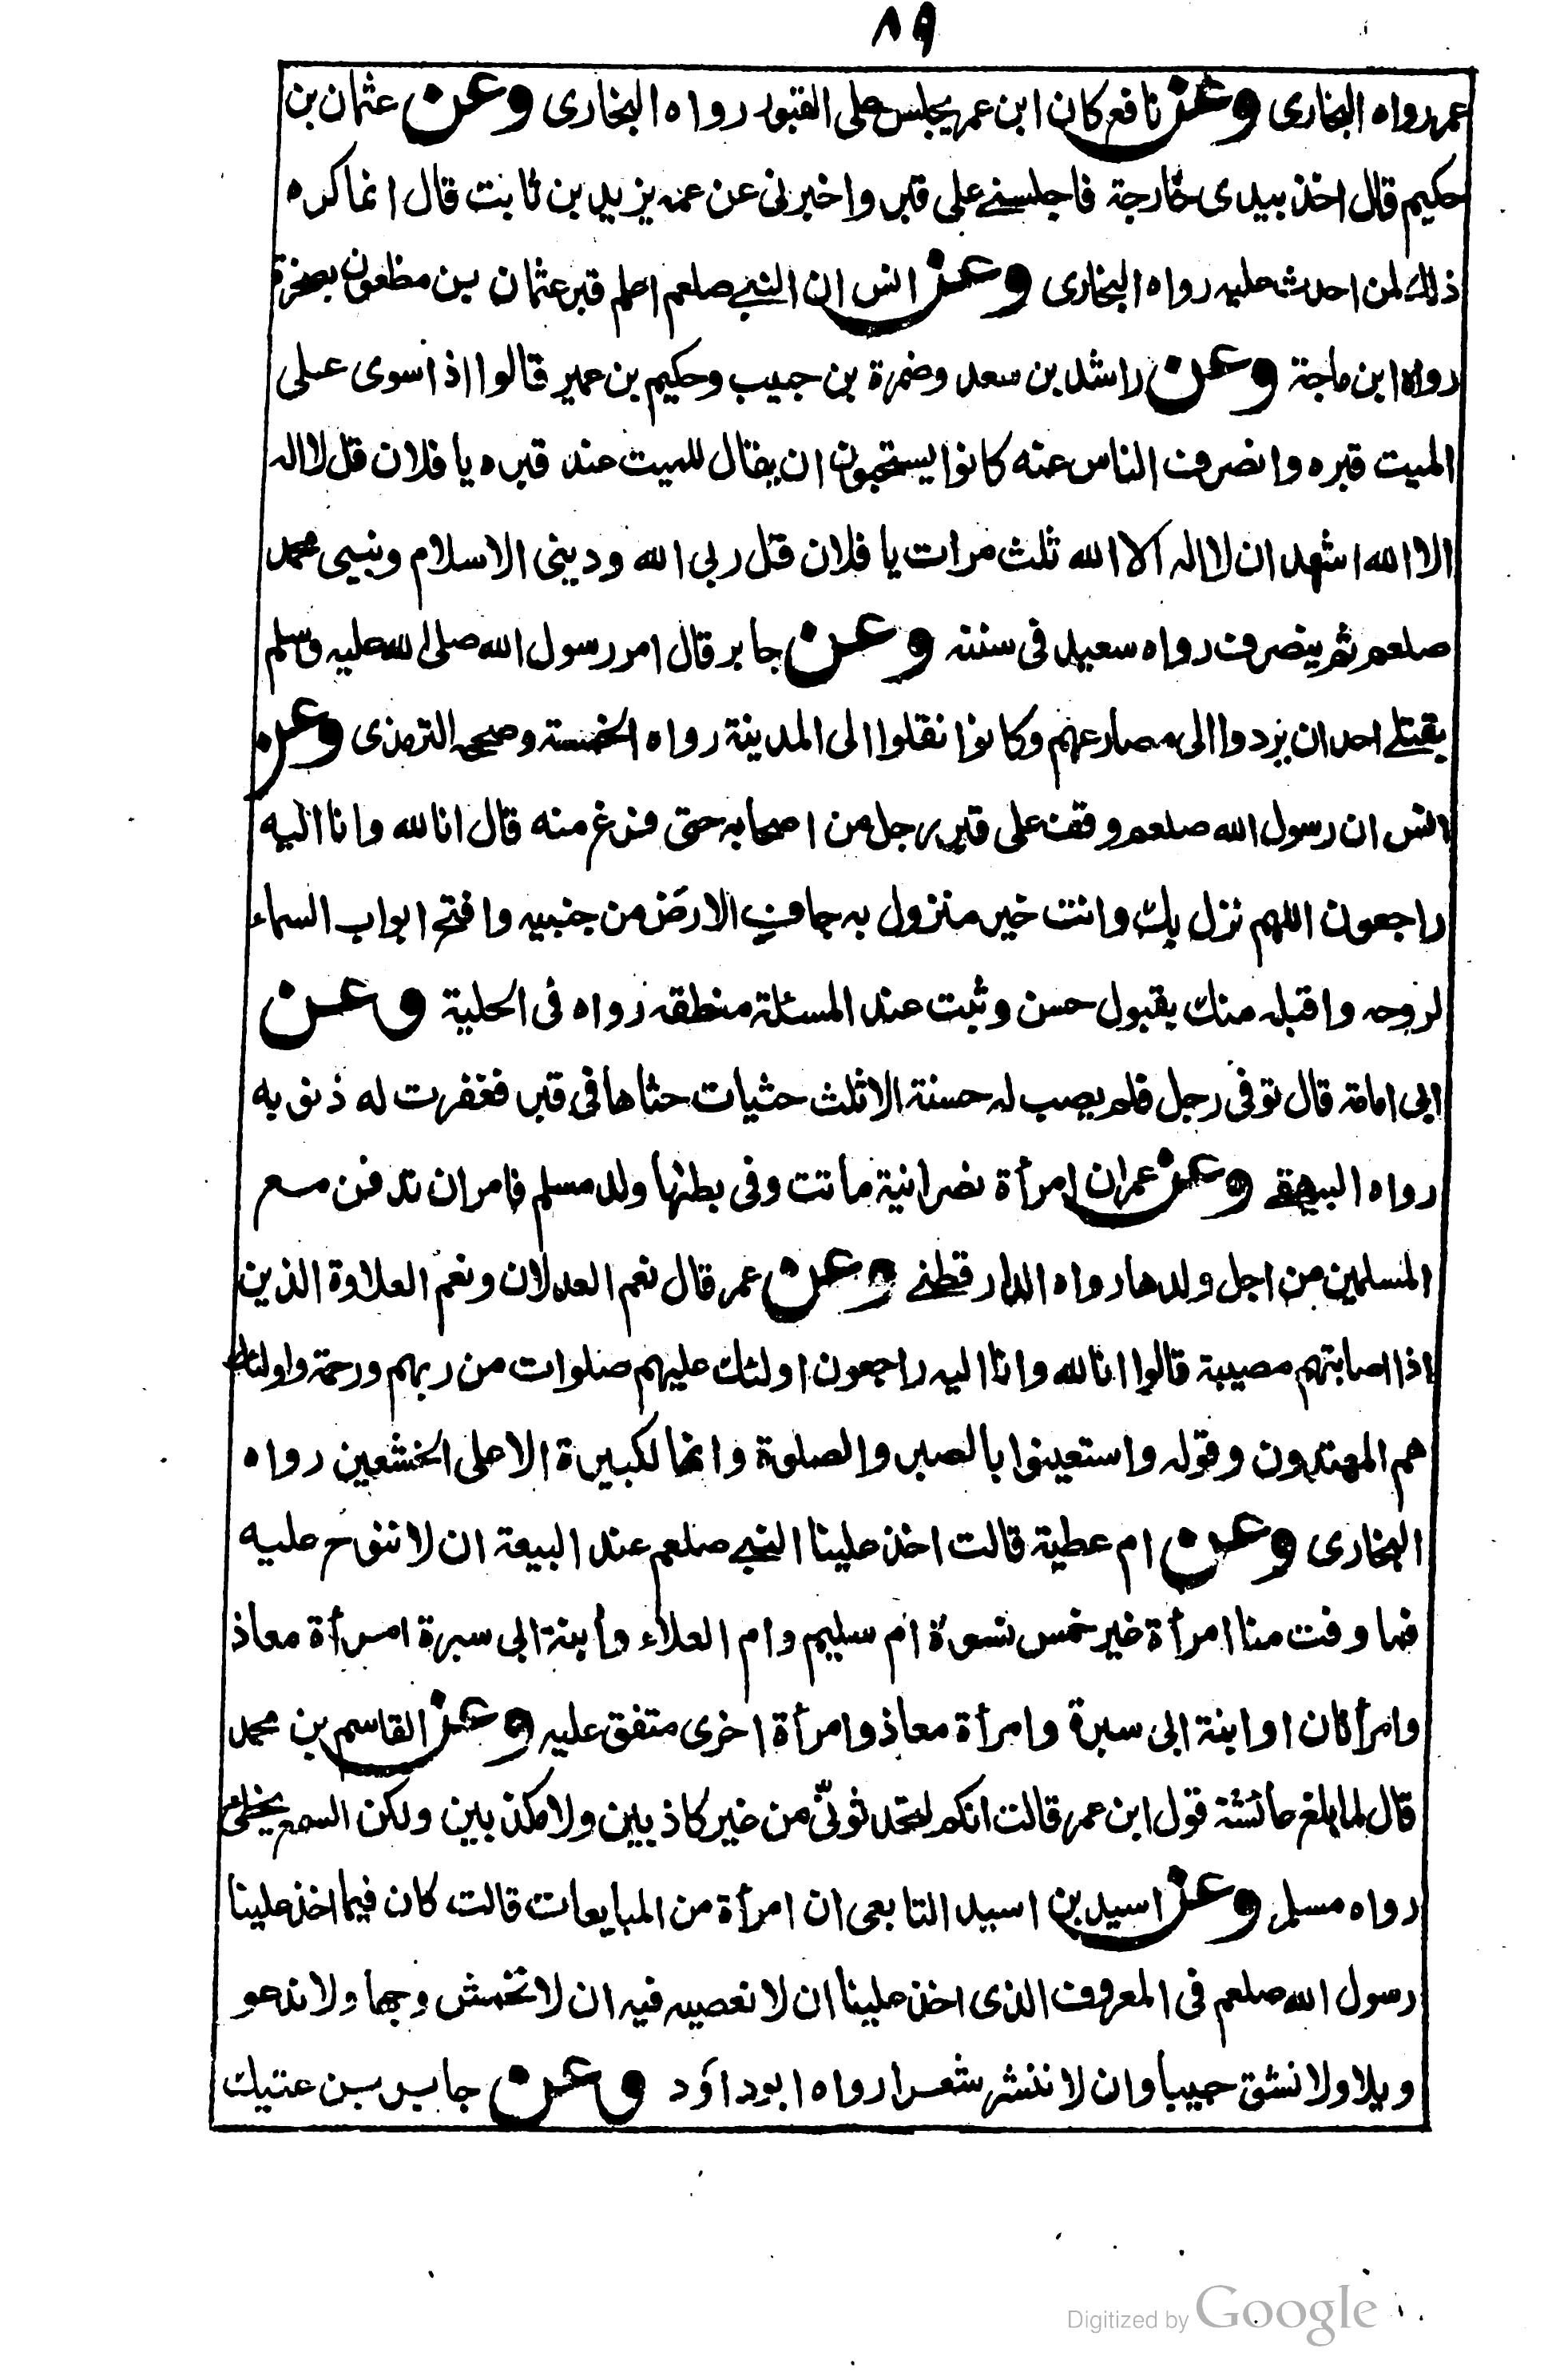 ٨٩
عمر رواه البخارى وعن نافع كان ابن عمر يجلس على القبور رواه البخارى وعن عثمان بن
حكيم قال اخذ بيدى خارجة فاجلسنے على قبر واخبرنى عن عمه يزيد بن ثابت قال انما كره
ذلك لمن احدث عليه رواه البخارى وعن انس ان النبے صلعم اعلم قبر عثمان بن مظعون بصخرة
رواه ابن ماجة وعن راشد بن سعد وضمرة بن حبيب وحكيم بن عمير قالوا اذا سوى على
الميت قبره وانصرف الناس عنه كانوا يستحبون ان يقال للميت عند قبره يا فلان قل لا اله
الا الله اشهد ان لا اله الا الله ثلث مرات يا فلان قل ربى الله ودينى الاسلام ونبيى محمد
صلعم ثم ينصرف رواه سعيد فى سننه وعن جابر قال امر رسول الله صلى الله عليه وسلم
بقتلے احد ان يردوا الى مصارعهم وكانوا نقلوا الى المدينة رواه الخمسة وصححه الترمذى وعن
انس ان رسول الله صلعم وقف على قبر رجل من اصحابه حتى فرغ منه قال انا لله وانا اليه
راجعون اللهم نزل بك وانت خير منزول به جاف الارض من جنبيه وافتح ابواب السماء
لروحه واقبله منك بقبول حسن وثبت عند المسئلة منطقه رواه فى الحلية وعن
ابى امامة قال توفى رجل فلم يصب له حسنة الا ثلث حثيات حثاها فى قبر فغفرت له ذنوبه
رواه البيهقے وعن عمران امرأة نصرانية ماتت وفى بطنها ولد مسلم فامر ان تدفن مع
المسلمين من اجل ولدها رواه الدارقطنے وعن عمر قال نعم العدلان ونعم العلاوة الذين
اذا اصابتهم مصيبة قالوا انا لله وانا اليه راجعون اولئك عليهم صلوات من ربهم ورحمة واولئك
هم المهتدون وقوله واستعينوا بالصبر والصلوة وانها لكبيرة الا على الخشعين رواه
البخارى وعن ام عطية قالت اخذ علينا النبے صلعم عند البيعة ان لا ننوح عليه
فما وفت منا امرأة غير خمس نسوة ام سليم وام العلاء وابنة ابى سبرة امرأة معاذ
وامرأتان او ابنة ابى سبرة وامرأة معاذ وامرأة اخرى متفق عليه وعن القاسم بن محمد
قال لما بلغ عائشة قول ابن عمر قالت انكم لتحدثونّى من غير كاذبين ولا مكذبين ولكن السمع يخطئ
رواه مسلم وعن اسيد بن اسيد التابعى ان امرأة من المبايعات قالت كان فيما اخذ علينا
رسول الله صلعم فى المعروف الذى اخذ علينا ان لا نعصيه فيه ان لا نخمش وجها ولا ندعو
ويلا ولا نشق جيبا وان لا ننشر شعرا رواه ابو داؤد وعن جابر بن عتيك
Digitized by Google